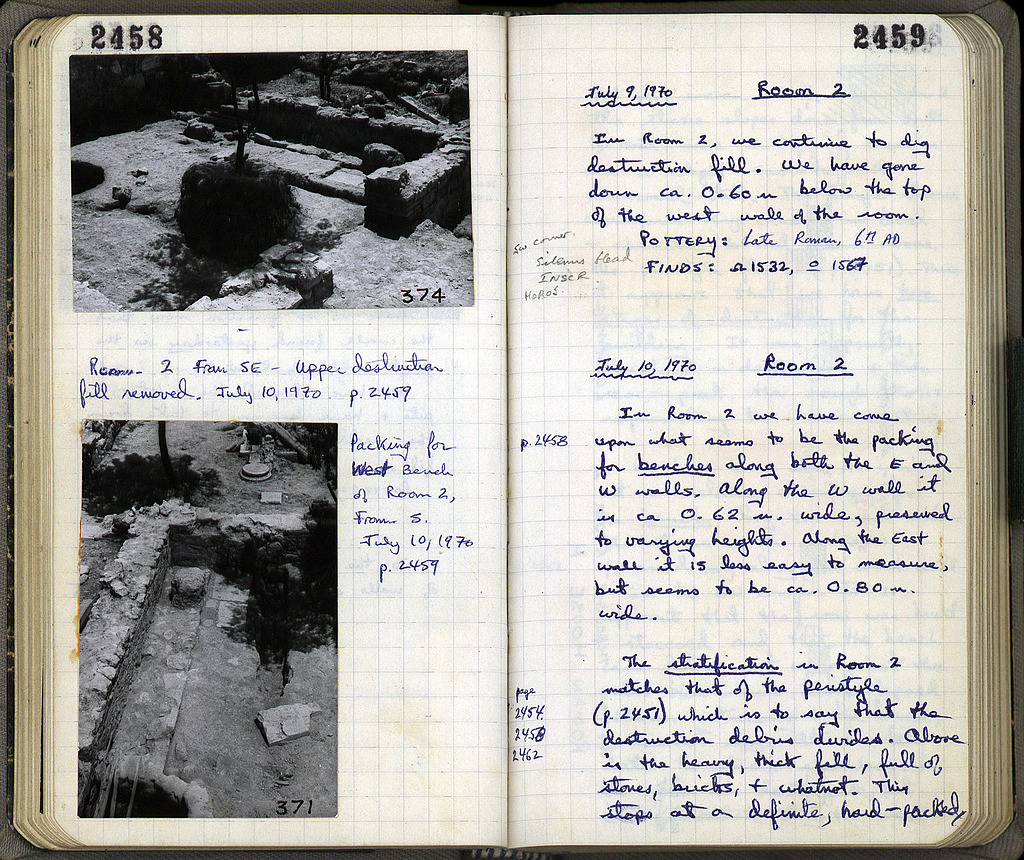 2458
374
Room 2 From SE - Upper destruction
fill removed. July 10, 1970 p. 2459
Packing for
West Bench
of Room 2,
From S.
July 10, 1970
p. 2459
371
2459
July 9, 1970 Room 2
In Room 2, we continue to dig
destruction fill. We have gone
down ca. 0.60 m below the top
of the west wall of the room.
POTTERY: Late Roman, 6th AD
FINDS: 1532, 1567
SW corner.
Silenus Head
INSCR
HOROS.
July 10, 1970 Room 2
In Room 2 we have come
p. 2458
upon what seems to be the packing
for benches along both the E and
W walls. Along the W wall it
is ca 0.62 m. wide, preserved
to varying heights. Along the East
wall it is less easy to measure,
but seems to be ca. 0.80 m.
wide.
The stratification in Room 2
matches that of the peristyle
(p. 2451) which is to say that the
destruction debris divides. Above
is the heavy, thick fill, full of
stones, bricks, + whatnot. This
stops at a definite, hard-packed,
page
2454
2458
2462